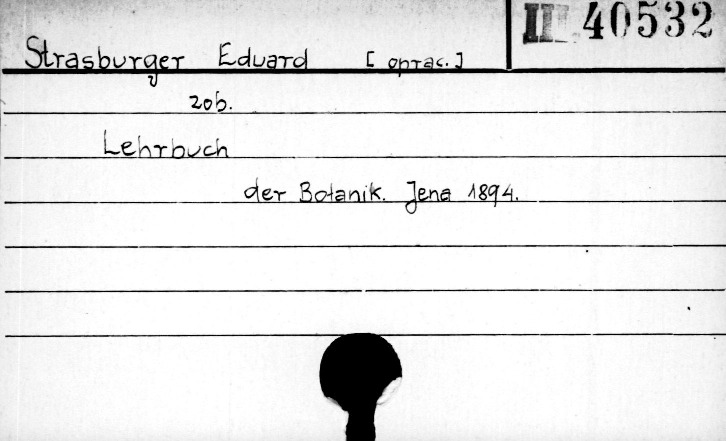 III 40532
Strasburger Eduard [oprac.]
zob.
Lehrbuch
der Botanik. Jena 1894.